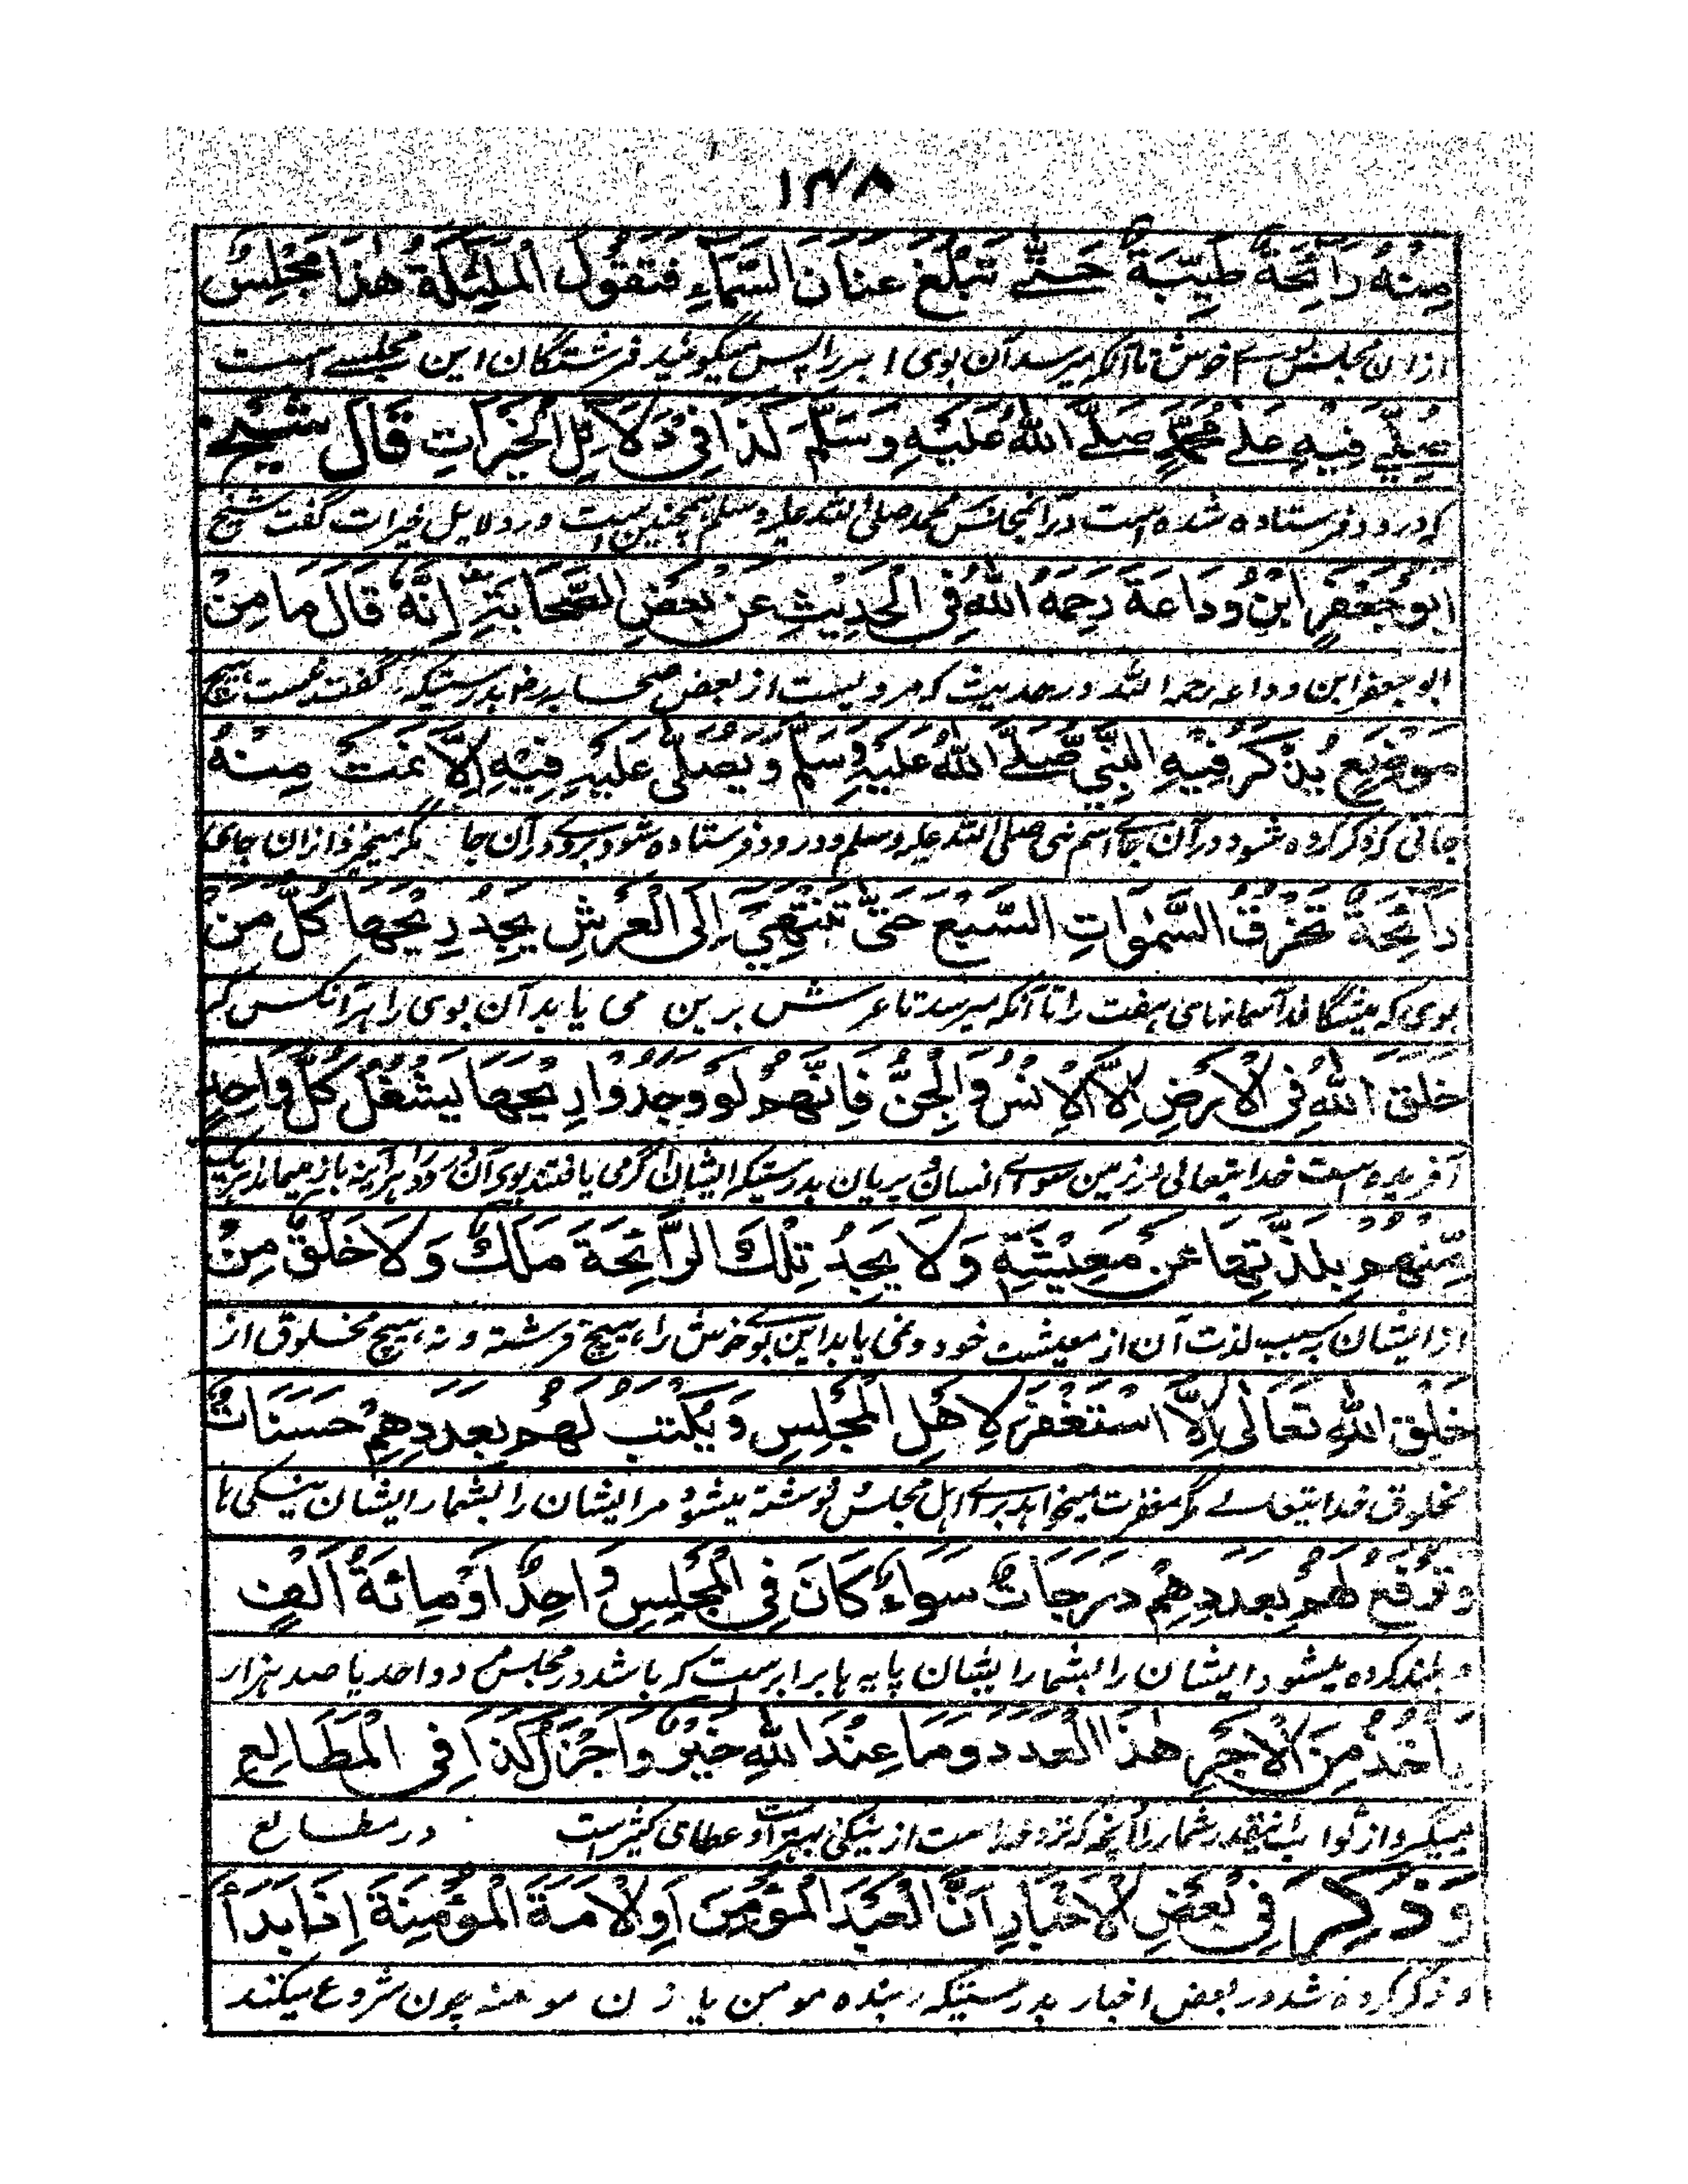 ۱۳۸
مِنْهُ رَائِحَةٌ طَيِّبَةٌ حَتّٰى تَبْلُغَ عَنَانَ السَّمَاءِ فَتَقُولُ الْمَلٰئِكَةُ هٰذَا مَجْلِسٌ
ازان مجلس بوے خوش تا آنکه میرسد آن بوی ابر را پس میگویند فرشتگان این مجلسے است
صُلِّيَ فِيْهِ عَلٰى مُحَمَّدٍ صَلَّى اللهُ عَلَيْهِ وَسَلَّمَ كَذَا فِى دَلَائِلِ الْخَيْرَاتِ قَالَ شَيْخٌ
که درود فرستاده شده است در آنمجلس محمد صلی الله علیه وسلم همچنین است در دلایل خیرات گفت شیخ
اَبُو جَعْفَرٍ ابْنِ وَدَاعَةَ رَحِمَهُ اللهُ فِى الْحَدِيْثِ عَنْ بَعْضِ الصَّحَابَةِ اِنَّهُ قَالَ مَا مِنْ
ابو جعفر ابن وداعه رحمه الله در حدیث که مرویست از بعض صحابه رض بدرستیکه گفت نیست هیچ
مَوْضِعٍ يُذْكَرُ فِيْهِ النَّبِيُّ صَلَّى اللهُ عَلَيْهِ وَسَلَّمَ وَيُصَلّٰى عَلَيْهِ فِيْهِ اِلَّا نَمَتْ مِنْهُ
جائی که ذکر کرده شود در آن جا اسم نبی صلی الله علیه وسلم و درود فرستاده شود بروے در آن جا مگر میخیزد ازان جای
رَائِحَةٌ تَخْرُقُ السَّمٰوَاتِ السَّبْعَ حَتّٰى تَنْتَهِيَ اِلَى الْعَرْشِ يَجِدُ رِيْحَهَا كُلُّ مَنْ
بوی که میشگافد آسمانهای هفت را تا آنکه میرسد تا عرش برین می یابد آن بوی را هر آنکس که
خَلَقَ اللهُ فِى الْاَرْضِ اِلَّا الْاِنْسُ وَالْجِنُّ فَاِنَّهُمْ لَوْ وَجَدُوْا رِيْحَهَا يَشْغُلُ كُلُّ وَاحِدٍ
آفریده است خدایتعالی در زمین سواے انسان و پریان بدرستیکه ایشان اگر می یافتند بوی آن درود هر آینه باز میماند هر یک
مِّنْهُمْ بِلَذَّتِهَا عَنْ مَعِيْشَتِهِ وَلَا يَجِدُ تِلْكَ الرَّائِحَةَ مَلَكٌ وَلَا خَلْقٌ مِنْ
از ایشان بسبب لذت آن از معیشت خود و نمی یابد این بوے خوش را هیچ فرشته و نه هیچ مخلوق از
خَلْقِ اللهِ تَعَالٰى اِلَّا اسْتَغْفَرَ لِاَهْلِ الْمَجْلِسِ وَيُكْتَبُ لَهُمْ بِعَدَدِهِمْ حَسَنَاتٌ
مخلوق خدایتعالے مگر مغفرت میخواهد براے اهل مجلس و نوشته میشود مر ایشان را بشمار ایشان نیکی ها
وَتُرْفَعُ لَهُمْ بِعَدَدِهِمْ دَرَجَاتٌ سَوَاءٌ كَانَ فِى الْمَجْلِسِ وَاحِدٌ اَوْ مِائَةُ اَلْفٍ
و بلند کرده میشود ایشان را بشمار ایشان پایه ها برابرست که باشد در مجلس واحد یا صد هزار
يَأْخُذُ مِنَ الْاَجْرِ هٰذَا الْعَدَدَ وَمَا عِنْدَ اللهِ خَيْرٌ وَاَجْزَلُ كَذَا فِى الْمَطَالِعِ
میگیرد از ثواب اینقدر شمار را و آنچه که نزد خداست از نیکی بهتر است و عطای کثیر است در مطالع
وَذُكِرَ فِى بَعْضِ الْاَخْبَارِ اَنَّ الْعَبْدَ الْمُؤْمِنَ اَوِ الْاَمَةَ الْمُؤْمِنَةَ اِذَا بَدَأَ
و ذکر کرده شد در بعض اخبار بدرستیکه بنده مومن یا زن مومنه چون شروع میکند